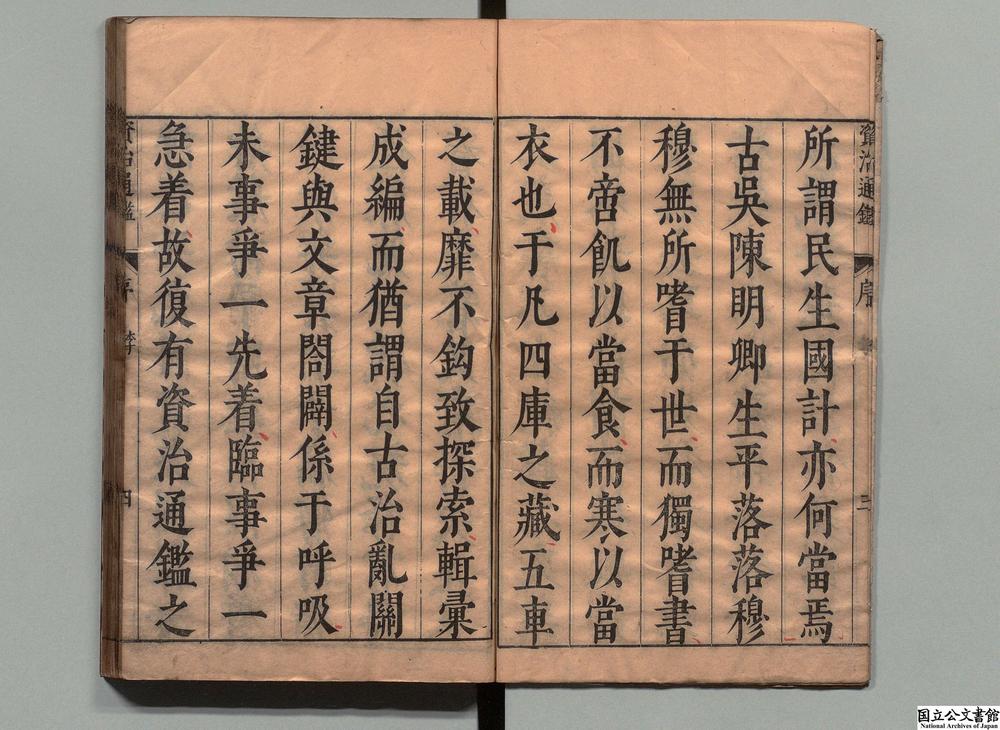 資治通鑑 序 三
所謂民生國計亦何當焉
古吳陳明卿生平落落穆
穆無所嗜于世而獨嗜書
不啻飢以當食而寒以當
衣也于凡四庫之藏五車
之載靡不鈎致探索輯彙
成編而猶謂自古治亂關
鍵與文章閤闢係于呼吸
未事爭一先着臨事爭一
急着故復有資治通鑑之
資治通鑑 序 四
国立公文書館
National Archives of Japan